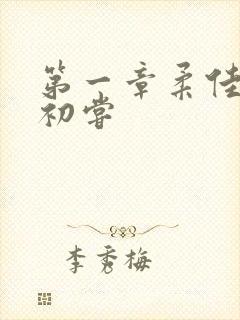 第一章柔佳
初尝
李秀梅